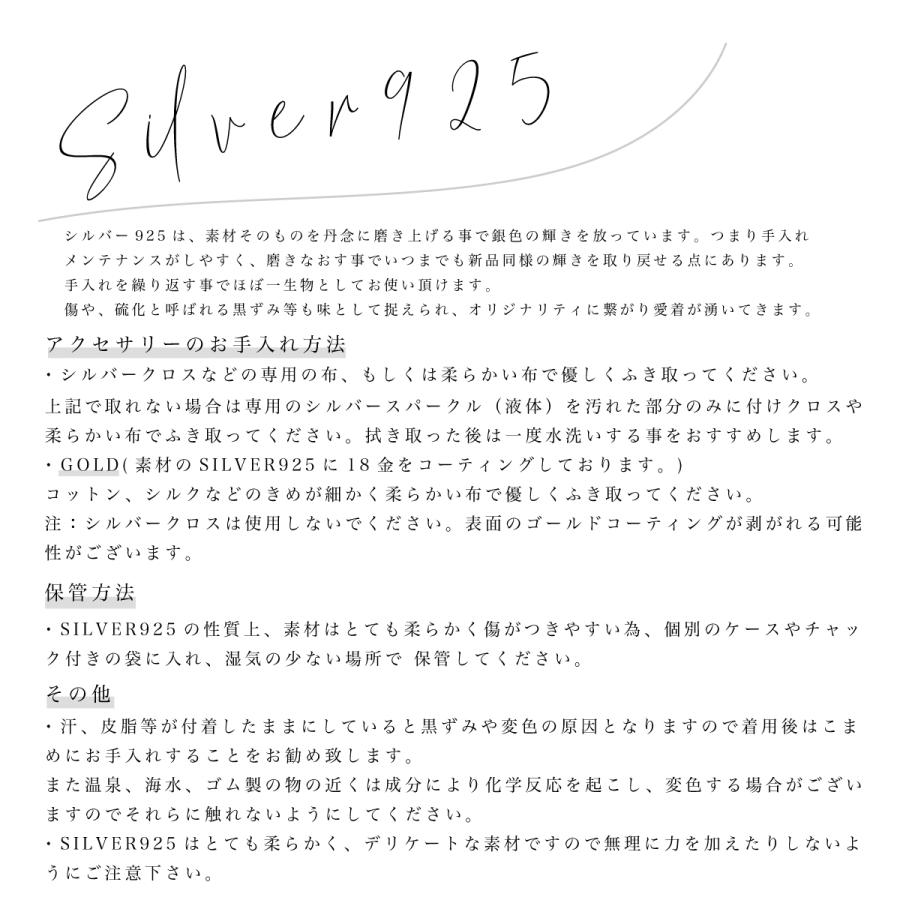 Silver925
シルバー925は、素材そのものを丹念に磨き上げる事で銀色の輝きを放っています。つまり手入れ
メンテナンスがしやすく、磨きなおす事でいつまでも新品同様の輝きを取り戻せる点にあります。
手入れを繰り返す事でほぼ一生物としてお使い頂けます。
傷や、硫化と呼ばれる黒ずみ等も味として捉えられ、オリジナリティに繋がり愛着が湧いてきます。
アクセサリーのお手入れ方法
・シルバークロスなどの専用の布、もしくは柔らかい布で優しくふき取ってください。
上記で取れない場合は専用のシルバースパークル（液体）を汚れた部分のみに付けクロスや
柔らかい布でふき取ってください。拭き取った後は一度水洗いする事をおすすめします。
・GOLD(素材のSILVER925に18金をコーティングしております。)
コットン、シルクなどのきめが細かく柔らかい布で優しくふき取ってください。
注：シルバークロスは使用しないでください。表面のゴールドコーティングが剥がれる可能
性がございます。
保管方法
・SILVER925の性質上、素材はとても柔らかく傷がつきやすい為、個別のケースやチャッ
ク付きの袋に入れ、湿気の少ない場所で 保管してください。
その他
・汗、皮脂等が付着したままにしていると黒ずみや変色の原因となりますので着用後はこま
めにお手入れすることをお勧め致します。
また温泉、海水、ゴム製の物の近くは成分により化学反応を起こし、変色する場合がござい
ますのでそれらに触れないようにしてください。
・SILVER925はとても柔らかく、デリケートな素材ですので無理に力を加えたりしないよ
うにご注意下さい。